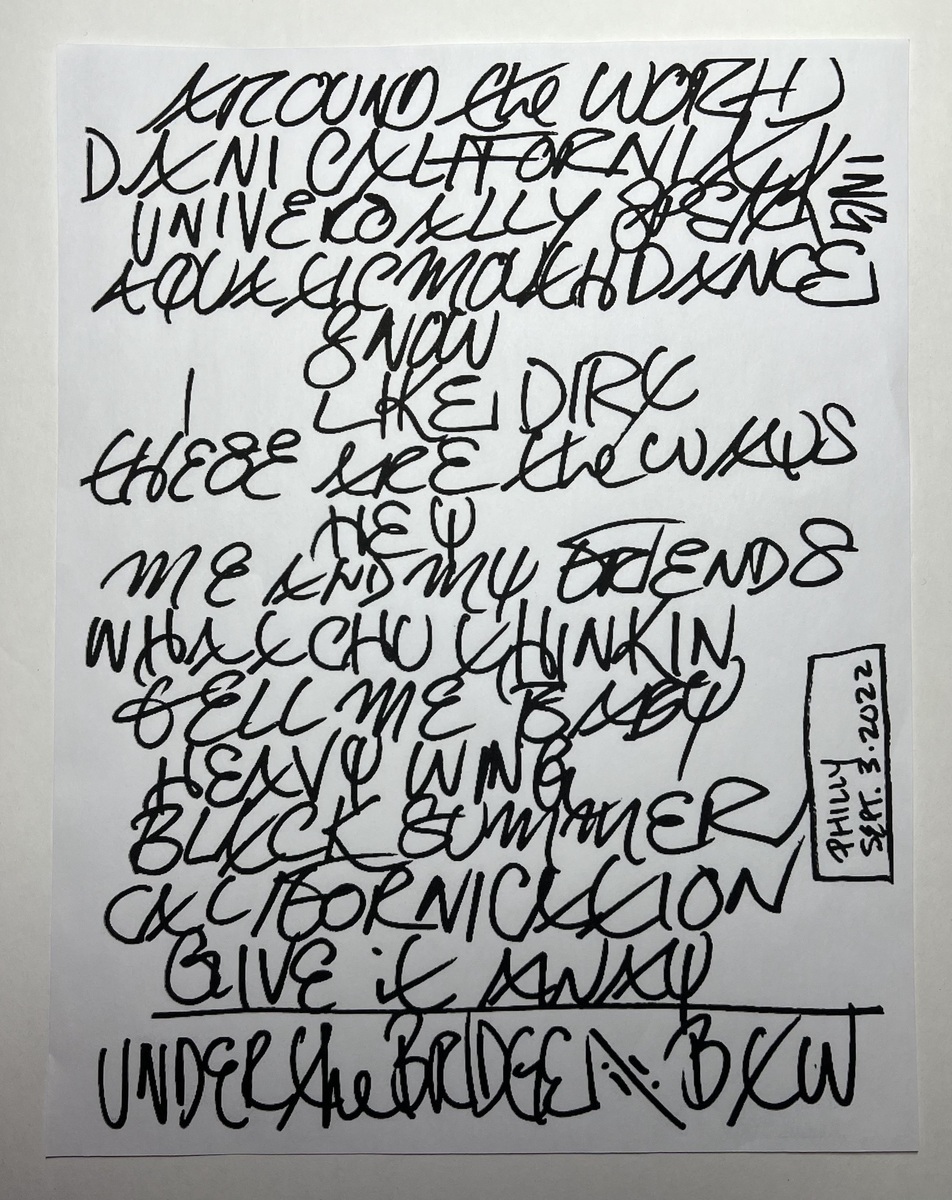 AROUND the WORLD
DANI CALIFORNIA
UNIVERSALLY SPEAKING
AQUATIC MOUTH DANCE
SNOW
I LIKE DIRT
THESE ARE the WAYS
HEY
ME AND MY FRIENDS
WHATCHU THINKIN
TELL ME BABY
HEAVY WING
BLACK SUMMER
CALIFORNICATION
GIVE it AWAY
UNDER the BRIDGE // BTW
PHILLY
SEPT. 3. 2022